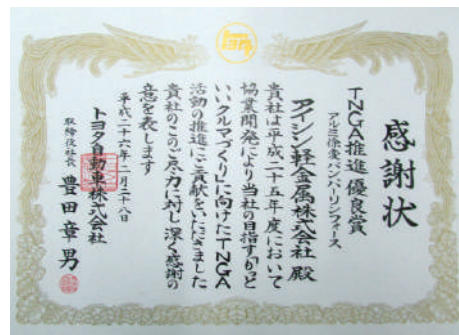 トヨタ
感謝状
TNGA推進優良賞
アルミ徐変ベンパーリンフォース
アイシン軽金属株式会社 殿
貴社は平成二十五年度において
協業開発により当社の目指す「もっと
いいクルマづくり」に向けたTNGA
活動の推進にご貢献をいただきました
貴社のこのご尽力に対し深く感謝の
意を表します
平成二十六年二月二十八日
トヨタ自動車株式会社
取締役社長 豊田章男